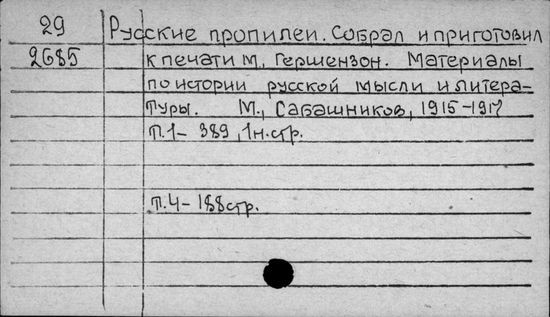 29 Русские пропилеи. Собрал и приготовил
2685 к печати М. Гершензон. Материалы
по истории русской мысли и литера-
туры. М., Сабашников, 1915-1917
Т.1- 389, 1н.стр.
Т.4- 188стр.